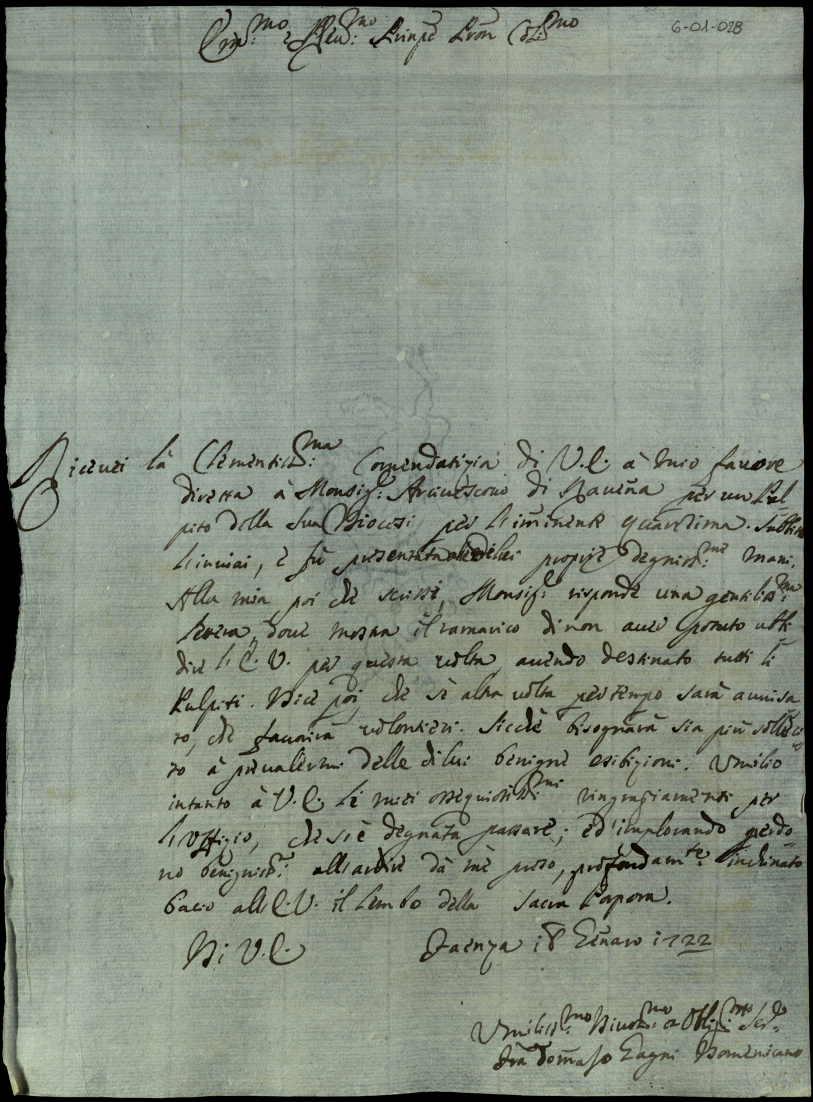 6-01-028
Em:mo e Reu:mo Prinpe Pron Col:mo
Riceuei là Clementiss:ma Comendatizia di V.E. à mio fauore
diretta à Monsig:r Arciuescouo di Rauena per un Pul
pito della Sua Diocesi per l'iminente quaresima. Subito
l'inuiai, e fù presentata nelle di lui proprie degniss:me mani.
Alla mia poi che scrissi, Monsig:r risponde una gentiliss:ma
lettera, doue mostra il ramarico di non auer potuto ubbi
dir l'E.V. per questa uolta, auendo destinato tutti li
Pulpiti. Dice poi, che sè altra uolta per tempo sarà auuisa
to, che fauorirà uolontieri. Sicche bisognarà sia più solleci
to à preualermi delle di lui benigne esibizioni. Umilio
intanto à V.E. li miei ossequiosissi:mi ringraziamenti per
l'uffizio, che si è degnata passare; ed'implorando perdo
no benigniss:o all'ardire dà mè preso, profondam:te inchinato
bacio all'E.V. il lembo della Sacra Porpora.
Di V.E. Faenza 18 Genaro 1722
Umiliss:mo Diuot:mo et Obblig:mo Ser.e
Fra Tomaso Zagni Domenicano